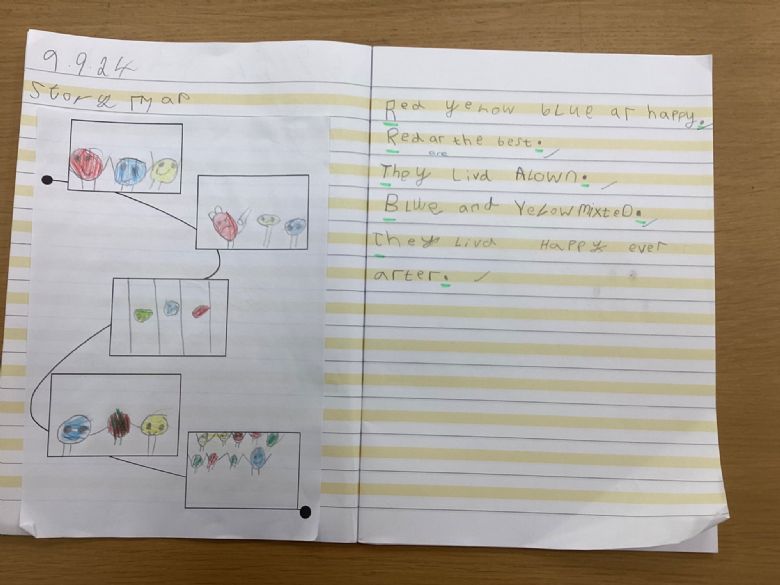 9.9.24
Story map
Red yellow blue ar happy.
Red ar the best.
are
They Livd Alown.
Blue and Yelow mixted.
They Livd Happy ever
arter.